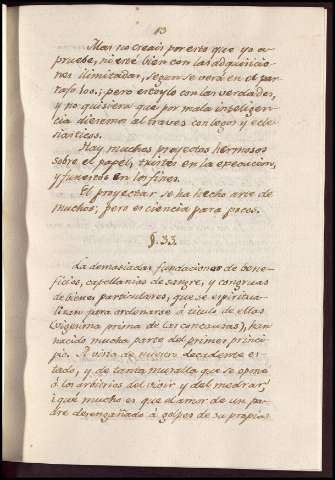 83
Mas no creais por esto que yo a-
pruebe, ni esté bien con las adquisicio-
nes ilimitadas, segun se verá en el par-
rafo 105.; pero estoylo con las verdades,
y no quisiera que por mala inteligen-
cia diesemos al traves con legos y ecle-
siásticos.
Hay muchos proyectos hermosos
sobre el papel, tristes en la execucion,
y funestos en los fines.
El proyectar se ha hecho arte de
muchos; pero es ciencia para pocos.
§. 33.
Las demasiadas fundaciones de bene-
ficios, capellanías de sangre, y congruas
de bienes particulares, que se espiritua-
lizan para ordenarse á título de ellas
(vigesima prima de las concausas), han
nacido mucha parte del primer princi-
pio. A vista de nuestro decadente es-
tado, y de tanta muralla que se opone
á los arbitrios del vivir y del medrar,
¿qué mucho es que el amor de un pa-
dre desengañado á golpes de su propia